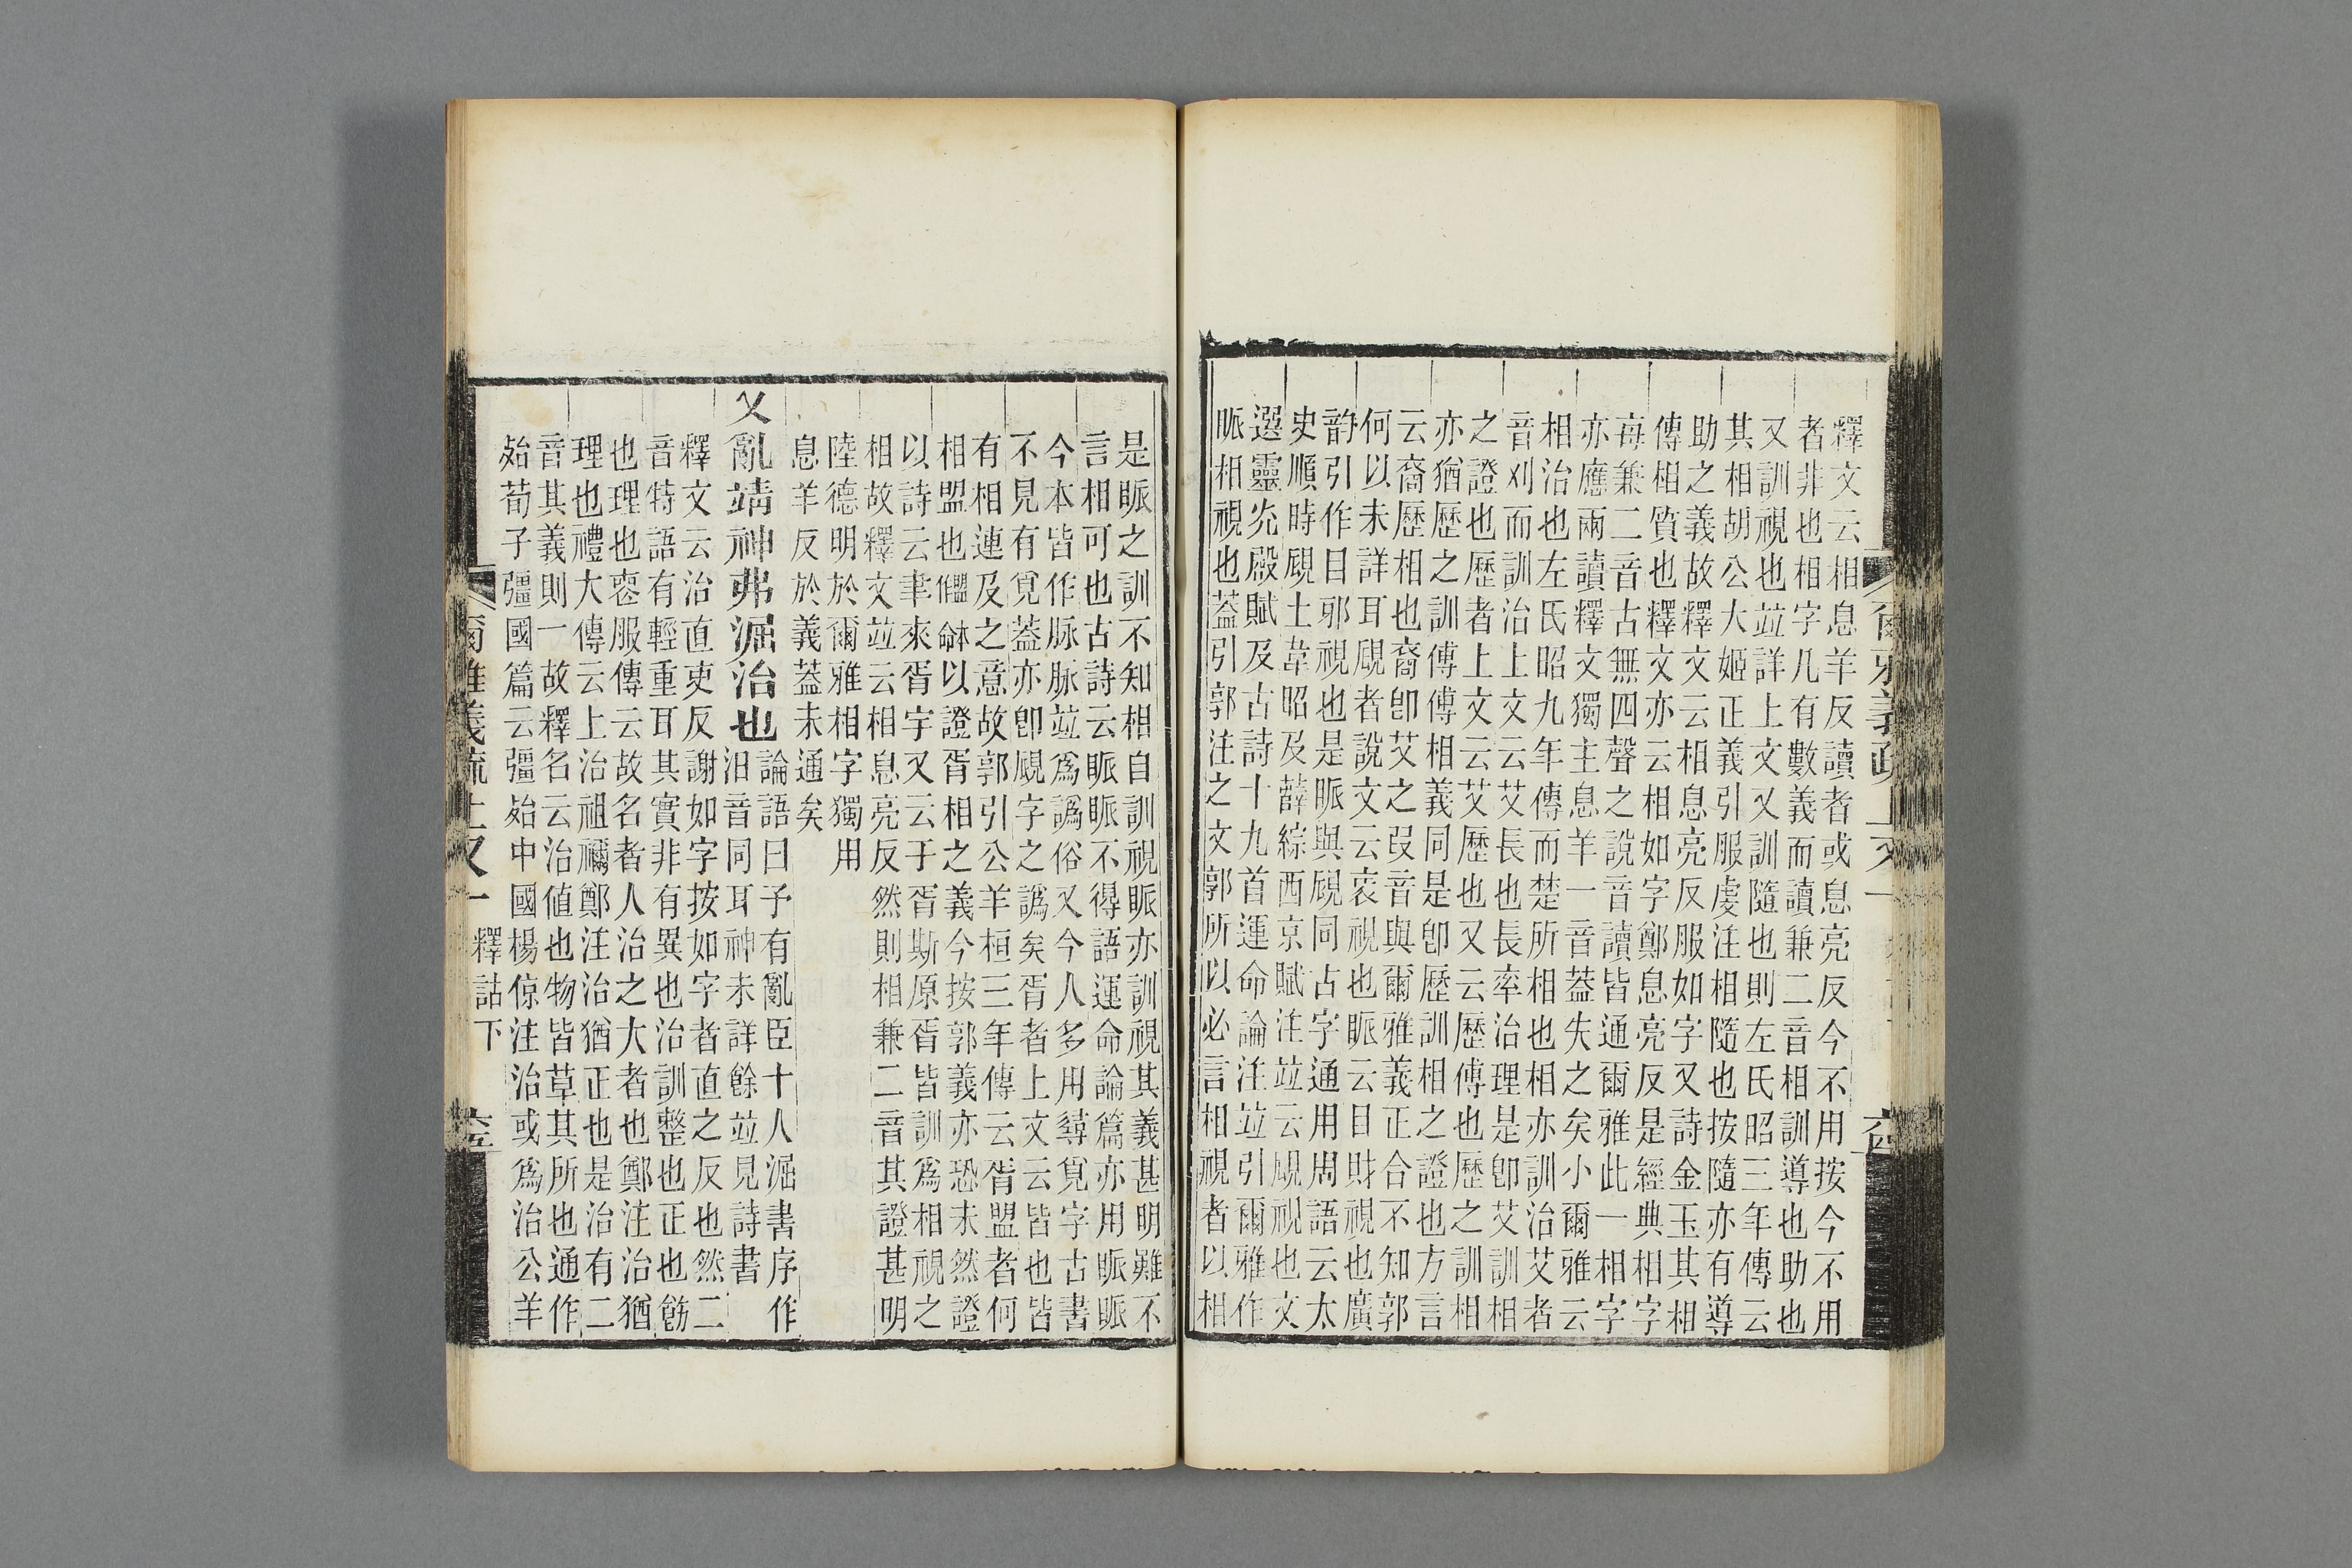 釋文云相息羊反讀者或息亮反今不用按今不用
者非也相字凡有數義而讀兼二音相訓導也助也
又訓視也竝詳上文又訓隨也則左氏昭三年傳云
其相胡公大姬正義引服虔注相隨也按隨亦有導
助之義故釋文云相息亮反服如字又詩金玉其相
傳相質也釋文亦云相如字鄭息亮反是經典相字
每兼二音古無四聲之說音讀皆通爾雅此一相字
亦應兩讀釋文獨主息羊一音蓋失之矣小爾雅云
相治也左氏昭九年傳而楚所相也相亦訓治艾者
音刈而訓治上文云艾長也長率治理是卽艾訓相
之證也歷者上文云艾歷也又云歷傅也歷之訓相
亦猶歷之訓傅傅相義同是卽歷訓相之證也方言
云裔歷相也裔卽艾之㕛音與爾雅義正合不知郭
何以未詳耳覛者說文云衺視也脈云目財視也廣
韵引作目邪視也是脈與覛同占字通用周語云太
史順時覛土韋昭及薛綜西京賦注竝云覛視也文
選靈光殿賦及古詩十九首運命論注竝引爾雅作
脈相視也蓋引郭注之文郭所以必言相視者以相
爾雅義疏上又一
六十四
是脈之訓不知相自訓視脈亦訓視其義甚明難不
言相可也古詩云脈脈不得語運命論篇亦用脈脈
今本皆作脉脉竝爲譌俗又今人多用尋覓字古書
不見有覓蓋亦卽覛字之譌矣胥者上文云皆也皆
有相連及之意故郭引公羊桓三年傳云胥盟者何
相盟也僵龢以證胥相之義今按郭義亦恐未然證
以詩云聿來胥宇又云于胥斯原胥皆訓爲相視之
相故釋文竝云相息亮反然則相兼二音其證甚明
陸德明於爾雅相字獨用
息羊反於義蓋未通矣
乂亂靖神弗淈治也
論語曰予有亂臣十人淈書序作
汨音同耳神未詳餘竝見詩書
釋文云治直吏反謝如字按如字者直之反也然二
音特語有輕重耳其實非有異也治訓整也正也飭
也理也䘮服傳云故名者人治之大者也鄭注治猶
理也禮大傳云上治祖禰鄭注治猶正也是治有二
音其義則一故釋名云治値也物皆草其所治也通作
殆荀子彊國篇云彊殆中國楊倞注治或爲治公羊
爾雅義疏上又一
釋詁下
六十五